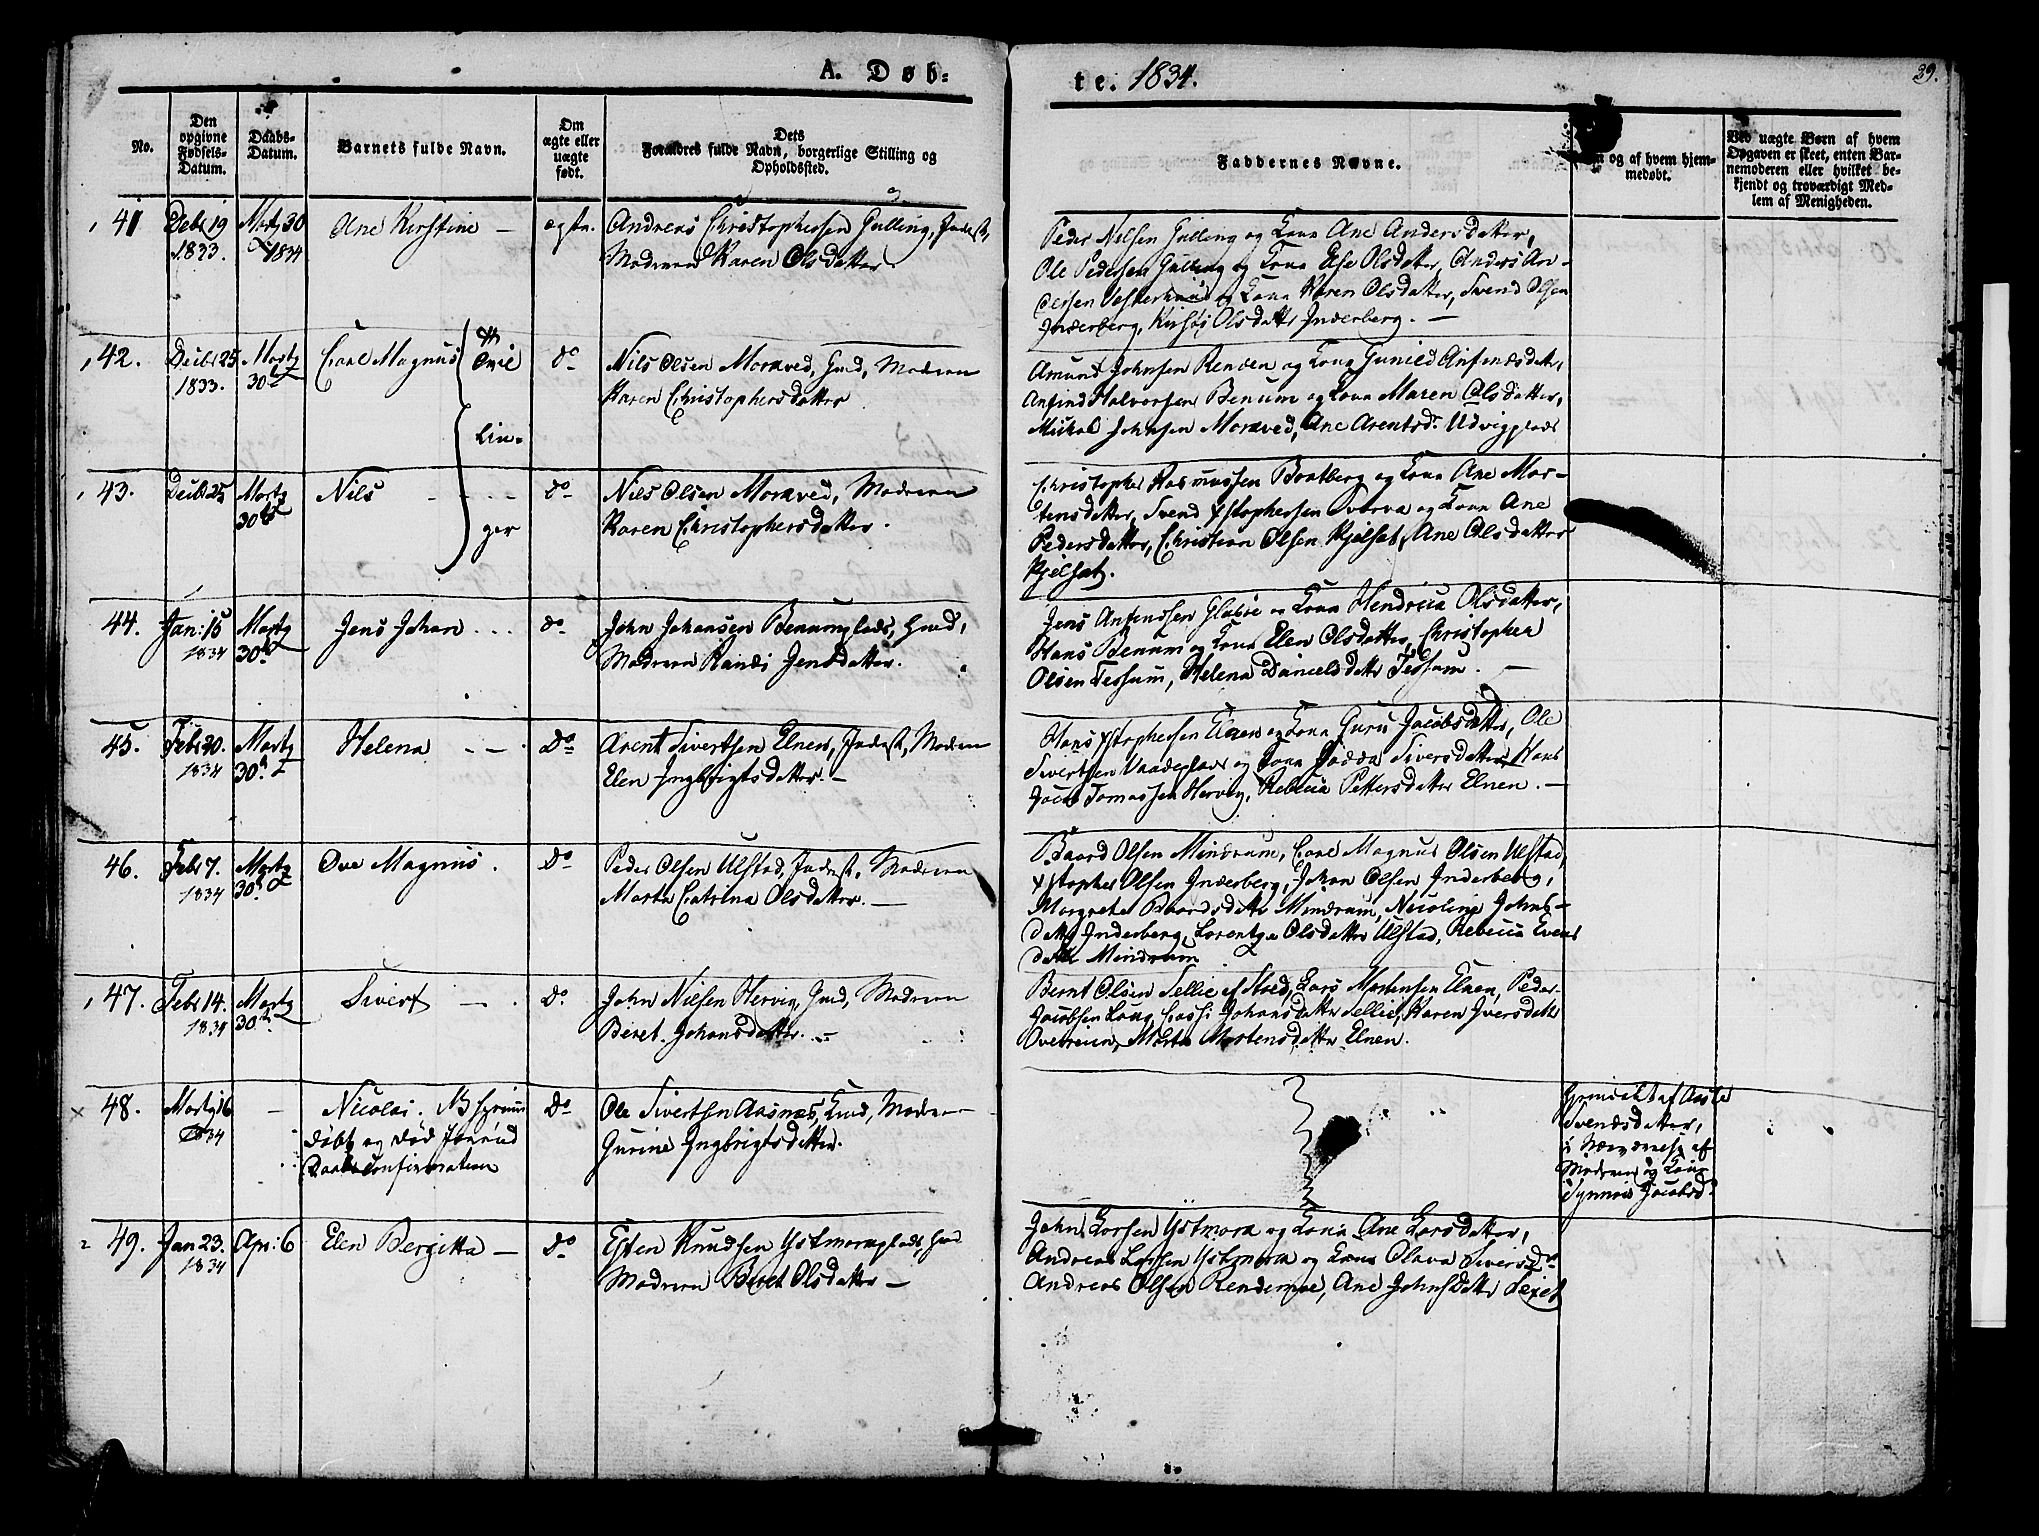 A. Døb-
te. 1834.
39.
No.
Den
opgivne
Fødsels-
Datum.
Daabs-
Datum.
Barnets fulde Navn.
Om
ægte eller
uægte
født.
Dets
Forældres fulde Navn, borgerlige Stilling og
Opholdssted.
Faddernes Navne.
og af hvem hjem-
medøbt.
Ved uægte Børn af hvem
Opgaven er skeet, enten Bar-
nemoderen eller hvilket be-
kjendt og troværdigt Med-
lem af Menigheden.
41
Debr 19
1833.
Martz 30
1834
Ane Kirstine —
ægte.
Andreas Christophersen Gulling, Inderst,
Moderen Karen Olsdatter.
Peder Nilsen Gulling og Kone Ane Andersdatter,
Ole Pedersen Gulling og Kone Else Olsdatter, Anders An-
dersen og Kone Karen Olsdatter, Svend Olsen
Inderberg, Olsdatter Inderberg. —
42.
Decbr 25
1833.
Martz
30
Carl Magnus
Tvil
lin-
ger
do
Nils Olsen Moraved, Gmd, Moderen
Karen Christophersdatter
Amund Johnsen Renden og Kone Gunild Anfindsdatr,
Anfind Halvorsen Benum og Kone Maren Olsdatter,
Mikal Johnsen Moraved, Ane Arentsdr
43.
Decbr 25
Martz
30
Nils
do
Nils Olsen Moraved, Moderen
Karen Christophersdatter.
Christopher Rasmussen Bratberg og Kone Ane Mor-
tensdatter, Svend Xstophersen Tvarva og Kone Ane
Pedersdatter, Christian Olsen Kjelsat, Ane Olsdatter
Kjelsat.
44.
Jan: 15
1834
Martz
30
Jens Johan ...
do
John Johansen Benumplads, Gmd,
Moderen Randi Jensdatter.
Jens Anfindsen og Kone Hendrica Olsdatter,
Hans Benum og Kone Elen Olsdatter, Christopher
Olsen Tessum, Helena Danielsdatter Tessum. —
45.
Febr 20.
1834
Martz
30
Helena
do
Arent Sivertsen Elnen, Inderst, Moderen
Elen Ingbrigtsdatter. —
Hans Xstophersen Elnen og Kone Guru Jacobsdatter, Ole
Sivertsen og Kone Siversdatter, Hans
Jacob Tomassen Hervig, Rebecca Pettersdatter Elnen. —
46.
Febr 7.
1834
Martz
30
Ove Magnus.
do
Peder Olsen Ulstad, Inderst, Moderen
Marta Catrina Olsdatter. —
Baard Olsen Mindrum, Carl Magnus Olsen Ulstad,
Xstopher Olsen Inderberg, Johan Olsen Inderberg,
Margreta Baardsdatter Mindrum, Nicoline Johns-
datter Inderberg, Lorentze Olsdatter Ulstad, Rebecca Evens
datter Mindrum
47.
Febr 14.
1834
Martz
30
Sivert
do
John Nilsen Hervig, Gmd, Moderen
Beret Johansdatter. —
Bernt Olsen Sellie, Lars Mortensen Elnen, Peder
Jacobsen Johansdatter Sellie, Karen Iversdatter
Overrein, Marta Mortensdatter Elnen.
48.
Martz 16
1834
—
Nicolai. NB hjemme
døbt og død forud
Daabsconfirmation
do
Ole Sivertsen Aasnæs, Moderen
Gurine Ingbrigtsdatter.
hjemdøbt af
Svendsdatter,
i Nærværelse af
Moderen og Kone
Synnøv Jacobsd.
49.
Jan 23.
1834
Apr: 6
Elen Bergitta —
do
Esten Knudsen Ystmoraplads, Gmd
Moderen Beret Olsdatter —
John Larsen Ystmora og Kone Ane Larsdatter,
Andreas Larsen Ystmora og Kone Olava Siversdr
Andreas Olsen Rendemoe, Ane Johnsdatter